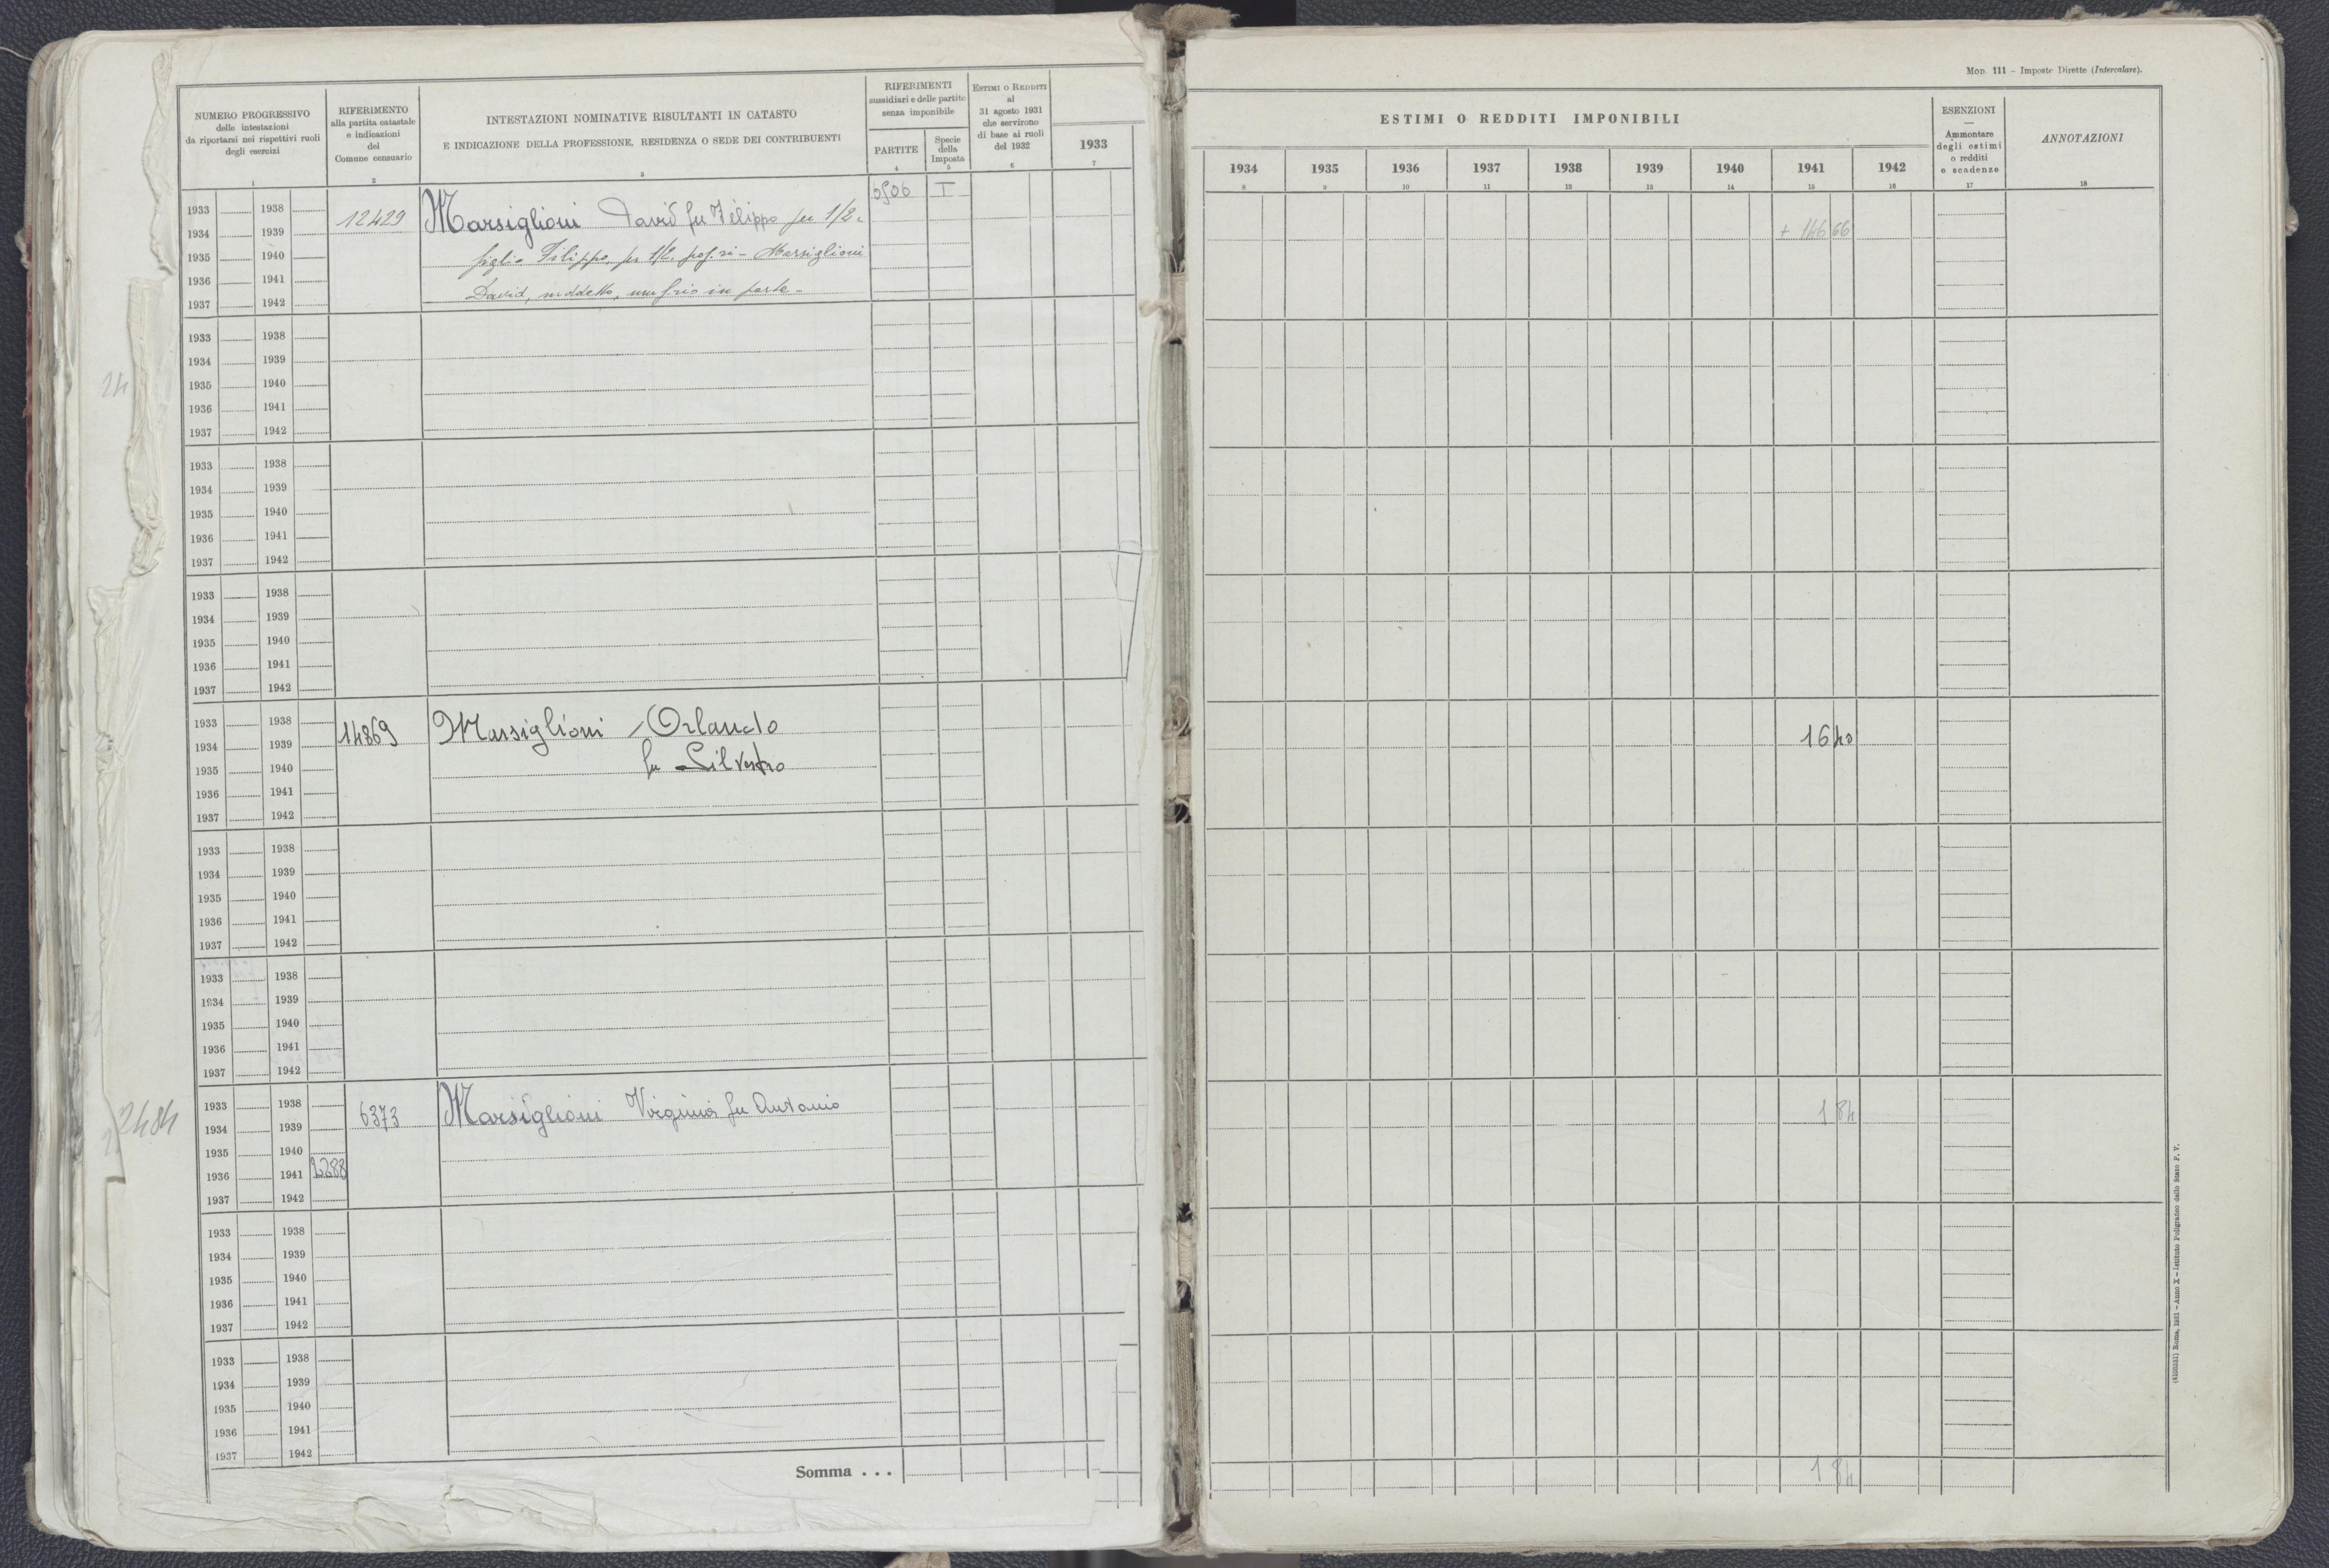 Mod. 111 – Imposte Dirette (Intercalare).
NUMERO PROGRESSIVO
delle intestazioni
da riportarsi nei rispettivi ruoli
degli esercizi
1
RIFERIMENTO
alla partita catastale
e indicazioni
del
Comune censuario
2
INTESTAZIONI NOMINATIVE RISULTANTI IN CATASTO
E INDICAZIONE DELLA PROFESSIONE, RESIDENZA O SEDE DEI CONTRIBUENTI
3
RIFERIMENTI
sussidiari e delle partite
senza imponibile
PARTITE
4
Specie
della
Imposta
5
Estimi o Redditi
al
31 agosto 1931
che servirono
di base ai ruoli
del 1932
6
1933
7
ESTIMI O REDDITI IMPONIBILI
1934 1935 1936 1937 1938 1939 1940 1941 1942
8 9 10 11 12 13 14 15 16
ESENZIONI
—
Ammontare
degli estimi
o redditi
e scadenze
17
ANNOTAZIONI
18
1933 1938 12429 Marsiglioni David fu Filippo per 1/2 I + 146 66
1934 1939
1935 1940 figlio Filippo, per 1/2, Marsiglioni
1936 1941
1937 1942 David, suddetto, in parte –
1933 1938
1934 1939
24
1935 1940
1936 1941
1937 1942
1933 1938
1934 1939
1935 1940
1936 1941
1937 1942
1933 1938
1934 1939
1935 1940
1936 1941
1937 1942
1933 1938 14869 Marsiglioni Orlando 16 40
1934 1939
1935 1940 fu Silvestro
1936 1941
1937 1942
1933 1938
1934 1939
1935 1940
1936 1941
1937 1942
1933 1938
1934 1939
1935 1940
1936 1941
1937 1942
1933 1938 6373 Marsiglioni Virginia fu Antonio 1 84
2484
1934 1939
1935 1940
1936 1941 2288
1937 1942
1933 1938
1934 1939
1935 1940
1936 1941
1937 1942
1933 1938
1934 1939
1935 1940
1936 1941
1937 1942
Somma . . . 1 84
Roma, 1931 – Anno X – Istituto Poligrafico dello Stato P. V.